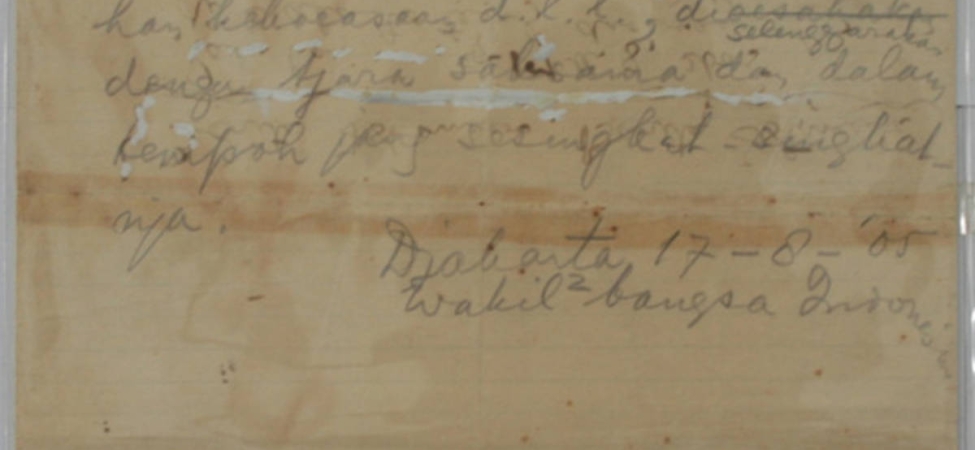 han kekoeasaan d.l.l., dioesahakan
selenggarakan
dengan tjara saksama dan dalam
tempoh jang sesingkat-singkat-
nja.
Djakarta 17 - 8 - '05
Wakil² bangsa Indonesia